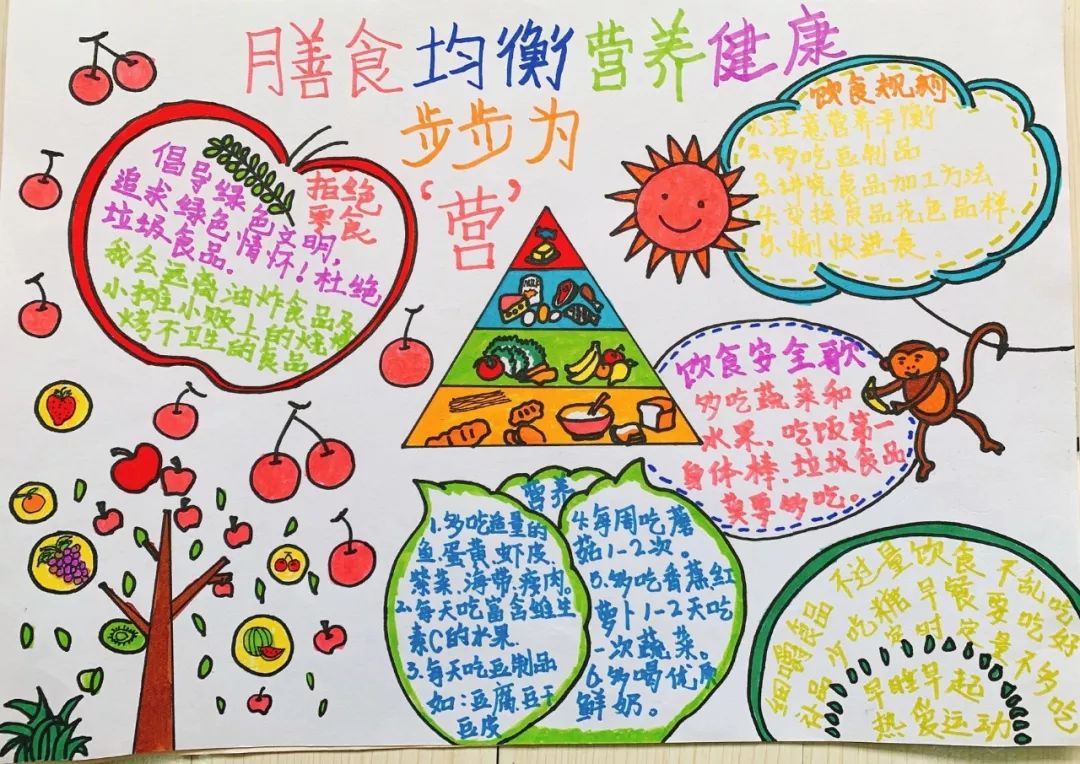 膳食均衡营养健康
步步为
‘营’
倡导绿色文明，
追求绿色情怀！杜绝
垃圾食品.
拒绝
零食
我会远离油炸食品及
小摊小贩上的烧
烤不卫生的食品
饮食规则
1.注意营养平衡
2.多吃豆制品
3.讲究食品加工方法
4.变换食品花色品样.
5.愉快进食.
饮食安全歌
多吃蔬菜和
水果、吃饭第一
身体棒、垃圾食品
莫要多吃。
营养
1.多吃适量的
鱼蛋黄虾皮、
紫菜、海带、瘦肉。
2.每天吃富含维生
素C的水果.
3.每天吃豆制品
如:豆腐豆干
豆皮
4.每周吃蘑
菇1-2次。
5.多吃香蕉红
萝卜1-2天吃
一次蔬菜。
6.多喝优质
鲜奶。
细嚼食品 不过量饮食 不乱吃
补品 少吃糖 早餐要吃好
定时定量不多吃
早睡早起
热爱运动